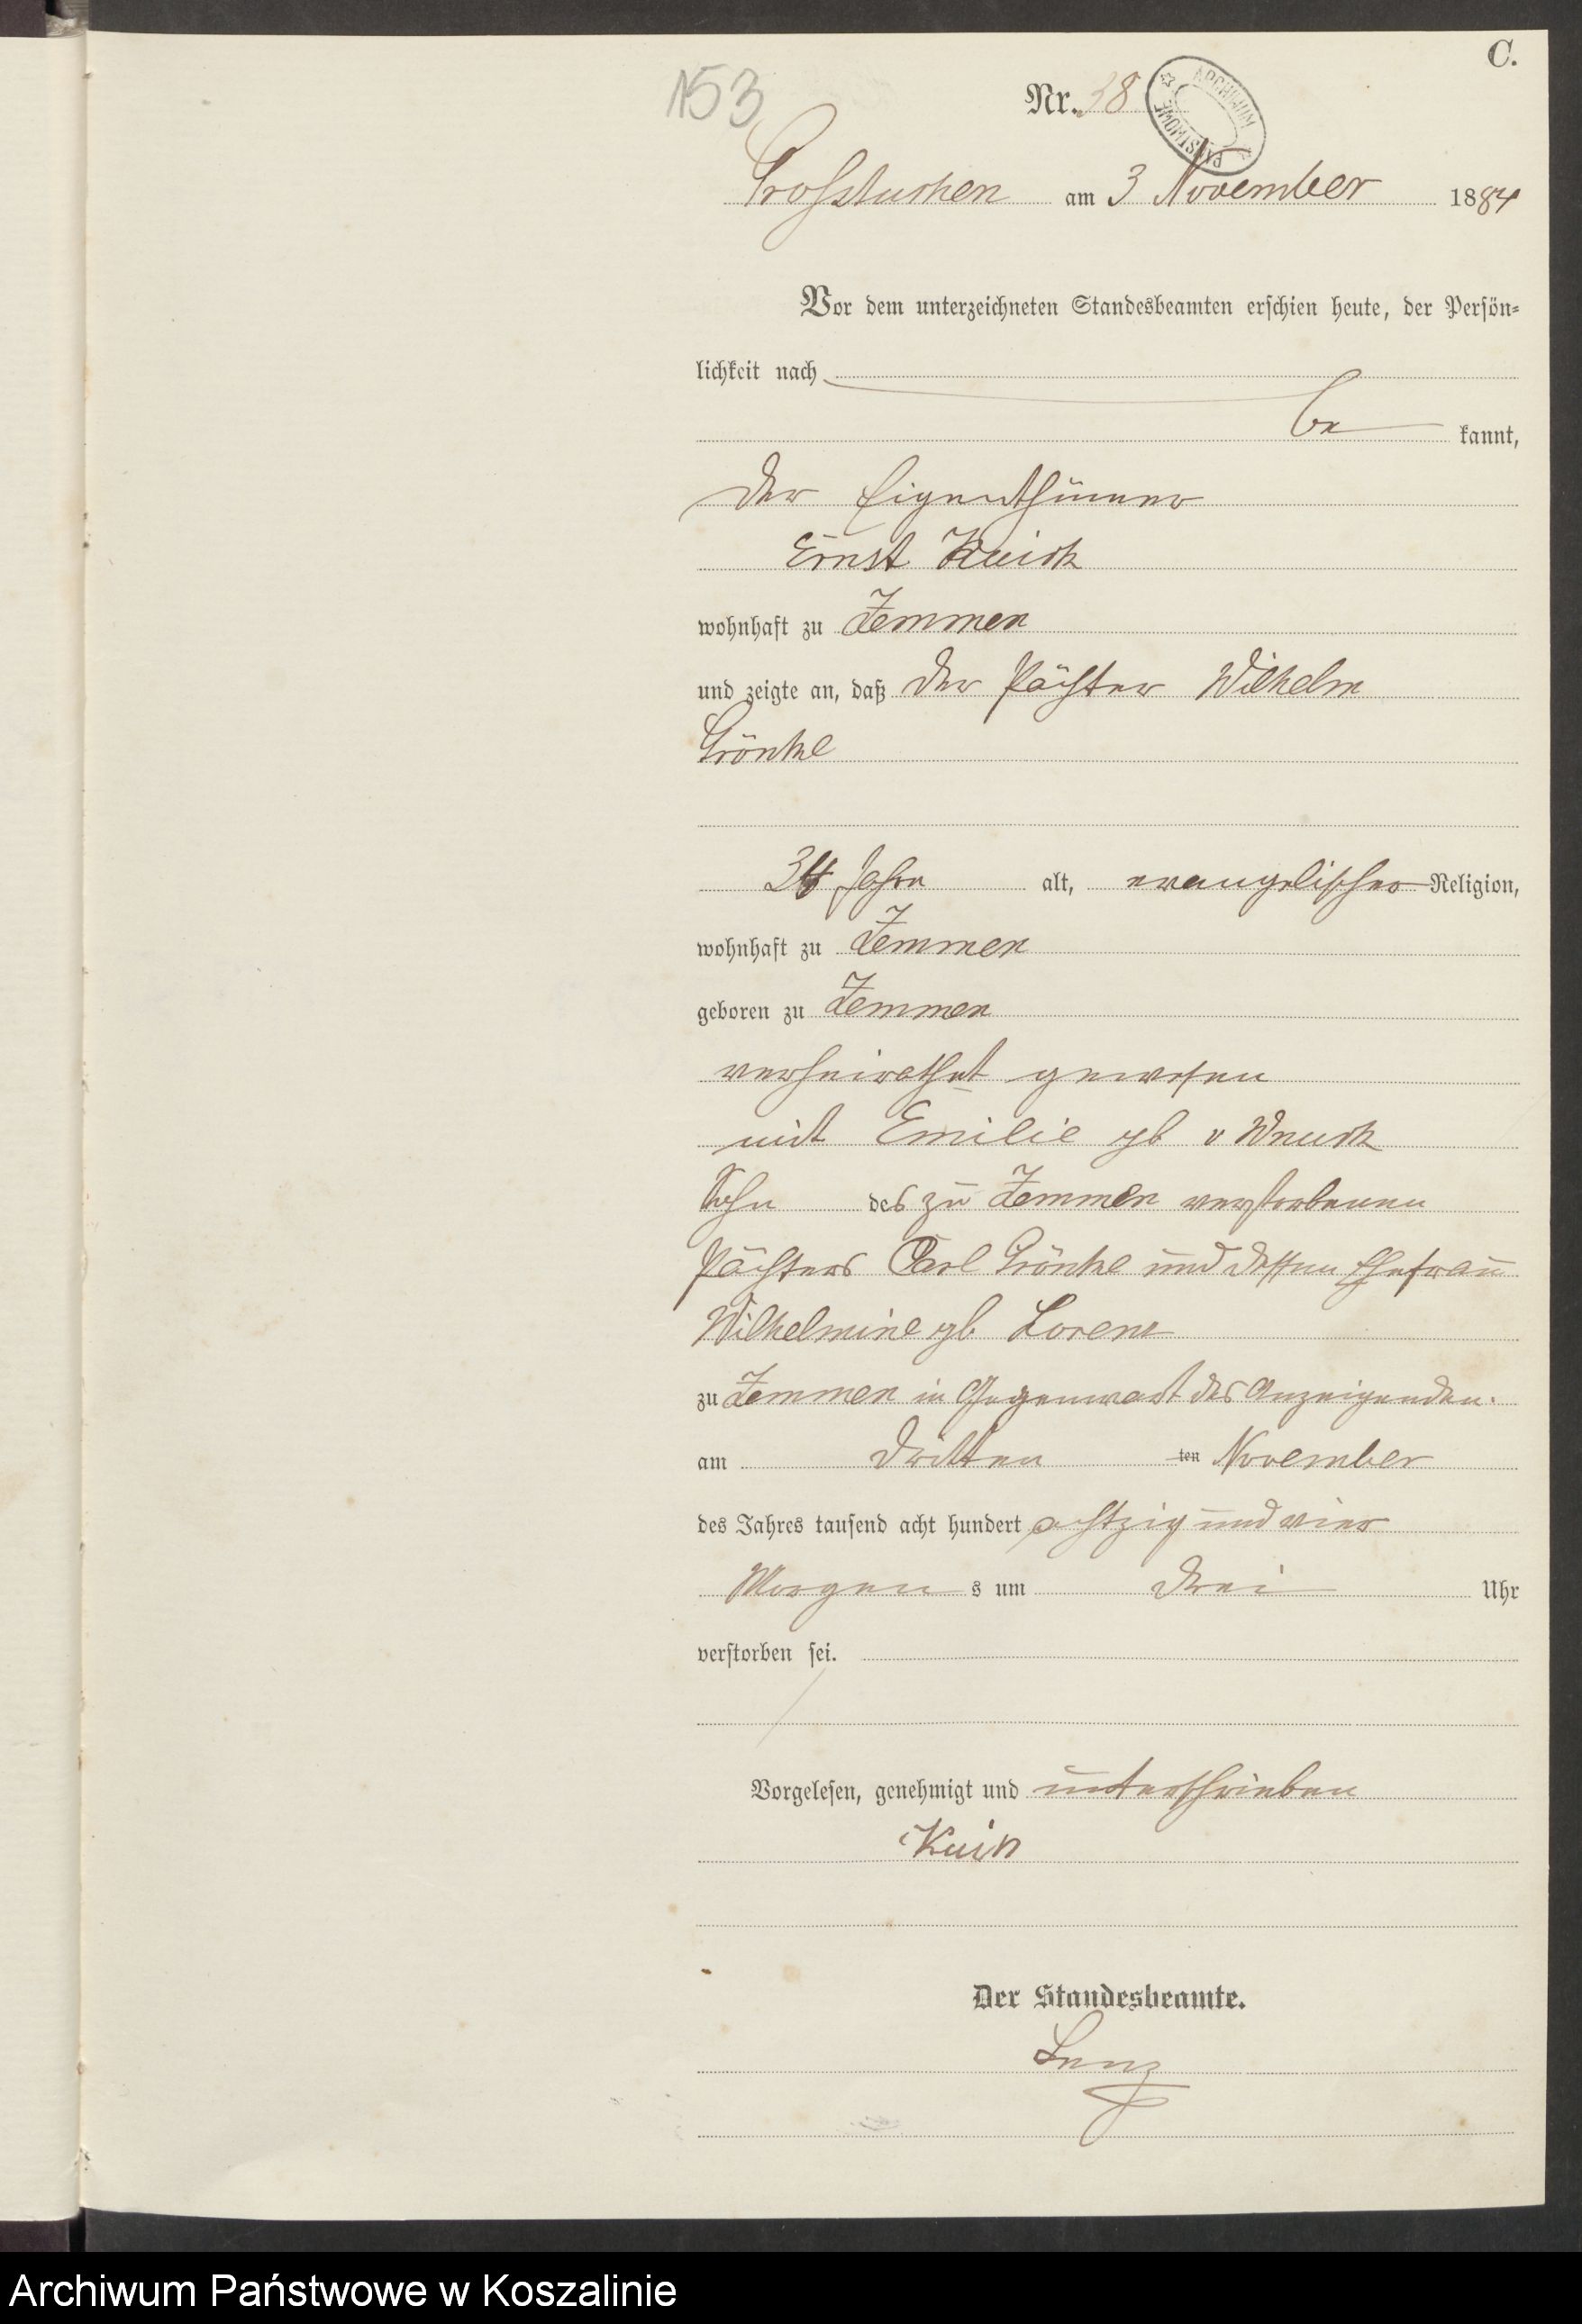 C.
153
Nr. 38
ARCHIWUM PAŃSTWOWE
Grosstuchen am 3 November 1884
Vor dem unterzeichneten Standesbeamten erschien heute, der Persön-
lichkeit nach
be kannt,
der Eigenthümer
Ernst
wohnhaft zu Zemmen
und zeigte an, daß der Pächter Wilhelm
Grönke
34 Jahre alt, evangelischer Religion,
wohnhaft zu Zemmen
geboren zu Zemmen
verheirathet gewesen
mit Emilie gb v
Sohn des zu Zemmen verstorbenen
Pächters Carl Grönke und dessen Ehefrau
Wilhelmine gb Lorenz
zu Zemmen in Gegenwart des Anzeigenden.
am dritten ten November
des Jahres tausend acht hundert achtzig und vier
Morgen s um drei Uhr
verstorben sei.
Vorgelesen, genehmigt und unterschrieben
Der Standesbeamte.
Lenz
Archiwum Państwowe w Koszalinie